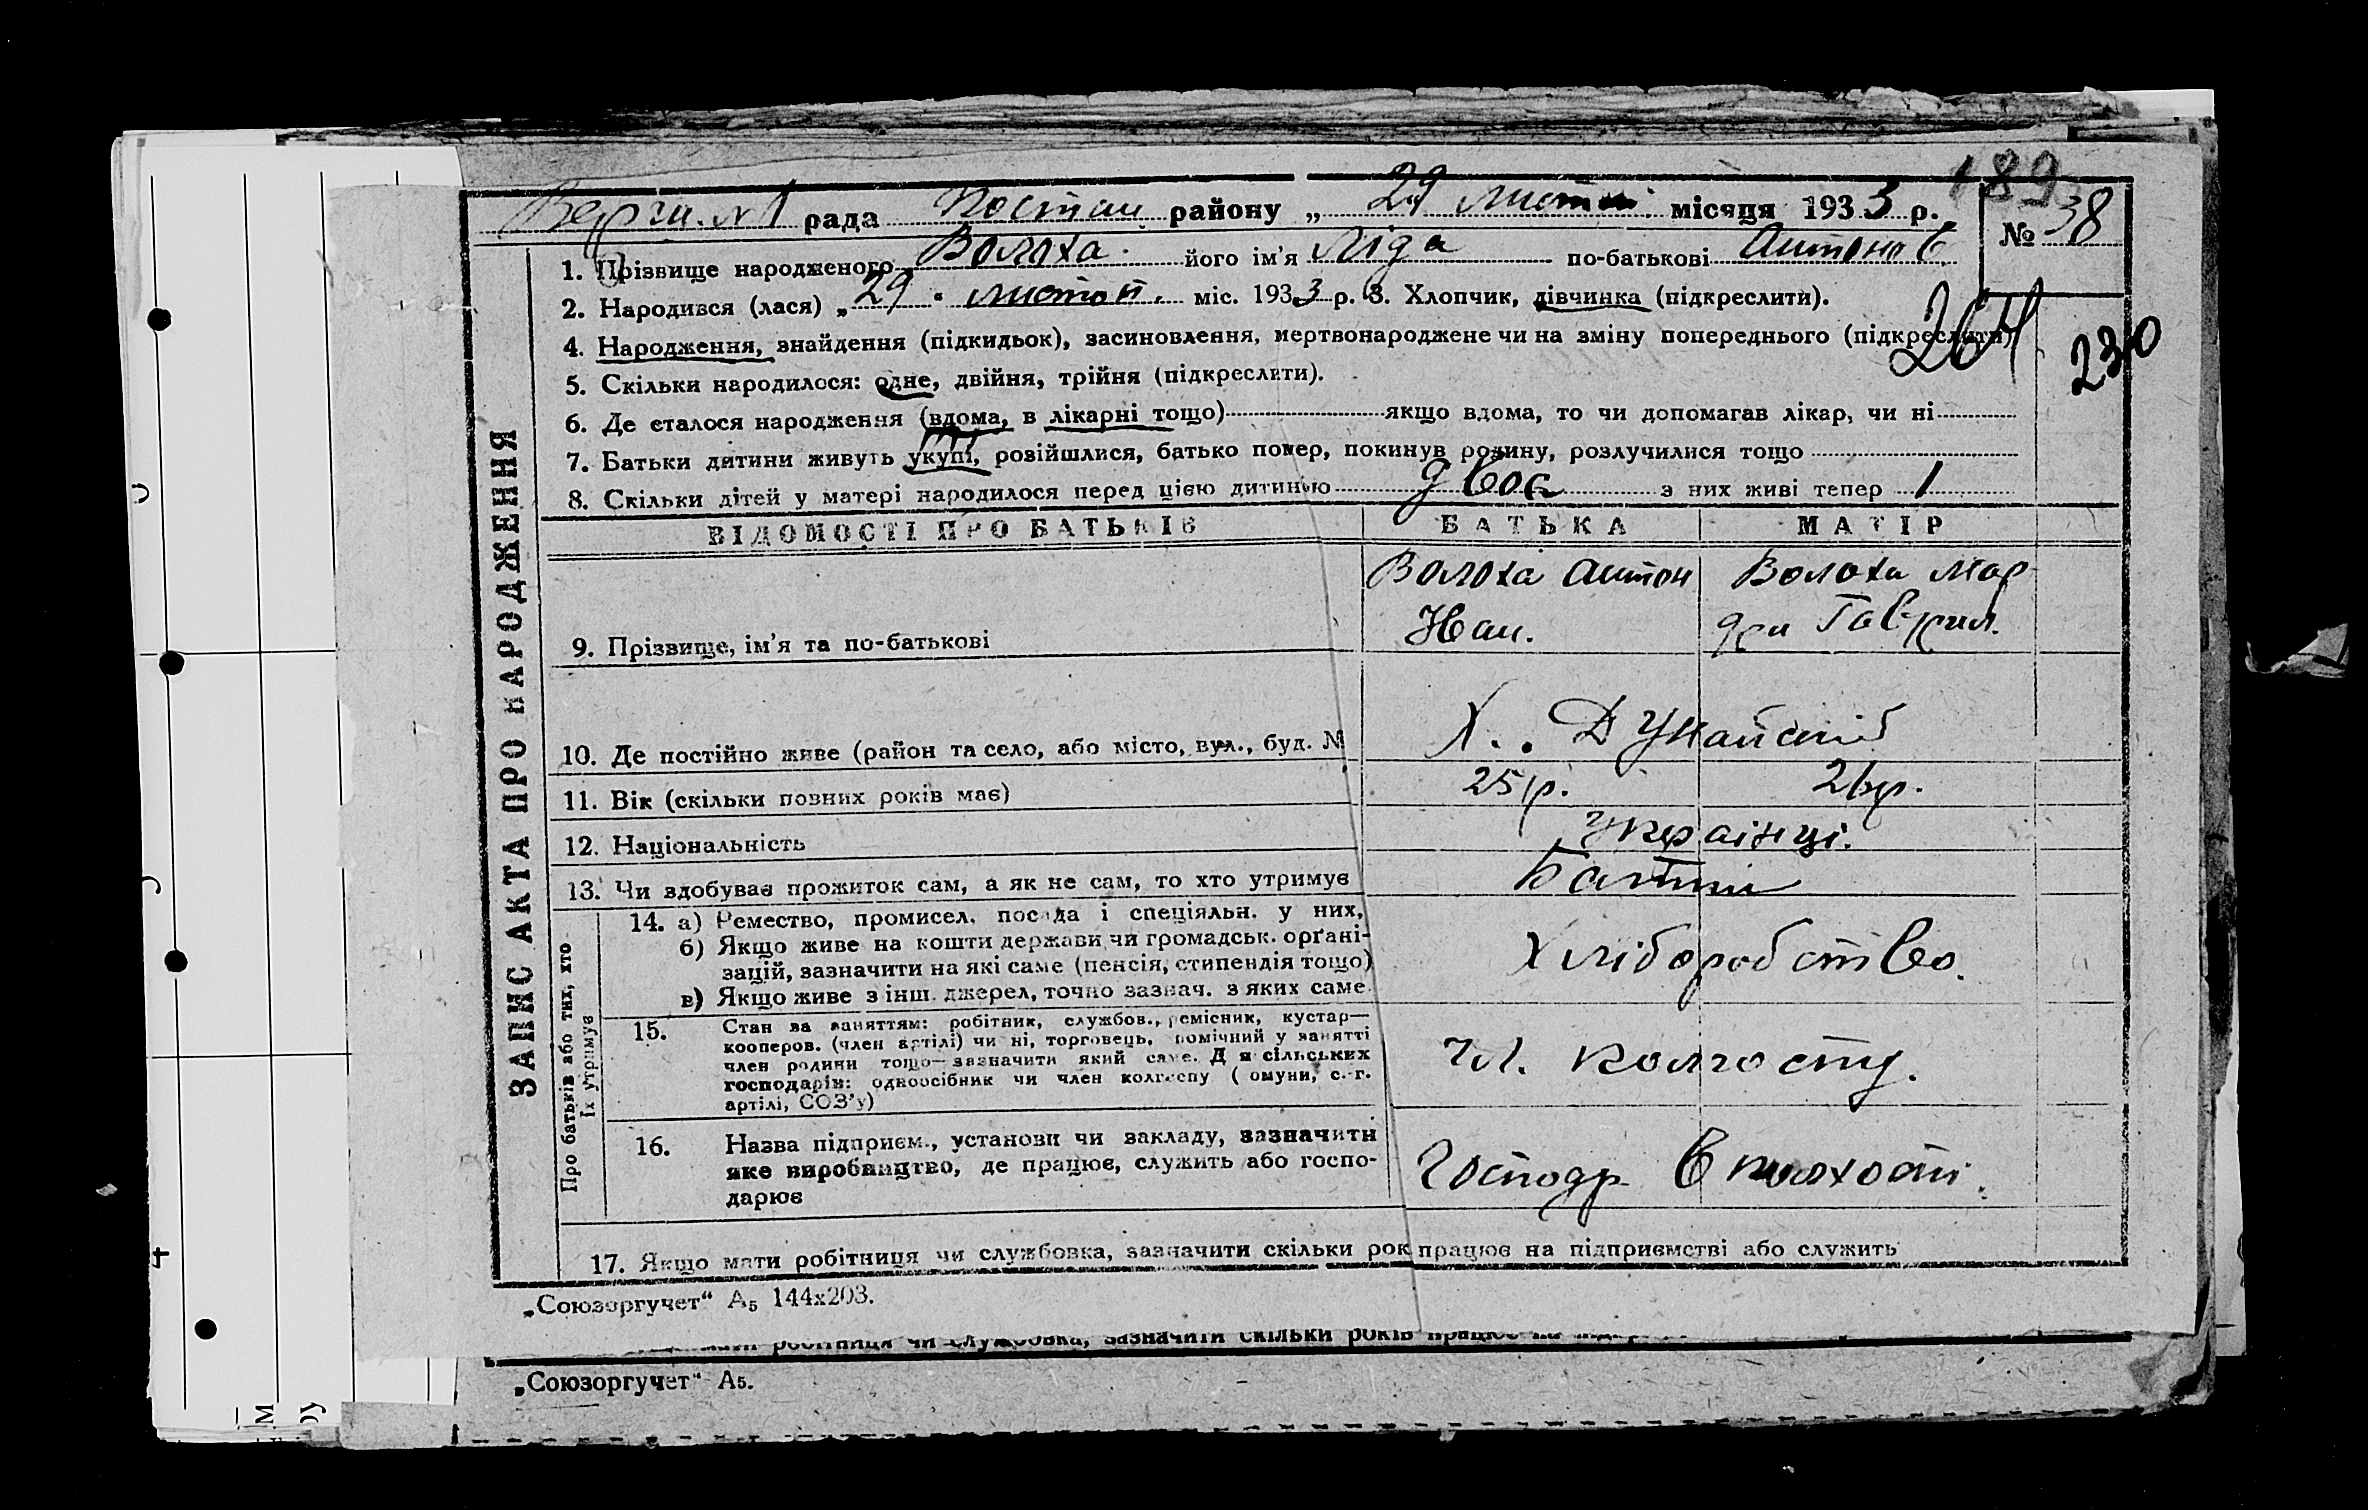 189
Верхи. №1 рада Костян району „ 29 листоп. місяця 1933 р. № 38
1. Прізвище народженого Волоха його ім'я Ліда по-батькові Антонов
2. Народився (лася) „ 29 " листоп. міс. 1933 р. 3. Хлопчик, дівчинка (підкреслити).
4. Народження, знайдення (підкидьок), засиновлення, мертвонароджене чи на зміну попереднього (підкреслити)
264
230
5. Скільки народилося: одне, двійня, трійня (підкреслити).
6. Де сталося народження (вдома, в лікарні тощо) якщо вдома, то чи допомагав лікар, чи ні
7. Батьки дитини живуть укупі, розійшлися, батько помер, покинув родину, розлучилися тощо
8. Скільки дітей у матері народилося перед цією дитиною двоє з них живі тепер 1
ЗАПИС АКТА ПРО НАРОДЖЕННЯ
ВІДОМОСТІ ПРО БАТЬКІВ БАТЬКА МАТІР
9. Прізвище, ім'я та по-батькові
Волоха Антон Волоха Мар
Иван. Гаврил.
10. Де постійно живе (район та село, або місто, вул., буд. №
Х.
11. Вік (скільки повних років має) 25 р. 26 р.
12. Національність Українці.
13. Чи здобуває прожиток сам, а як не сам, то хто утримує
Про батьків або тих, хто
їх утримує
14. а) Ремество, промисел, посада і спеціяльн. у них,
б) Якщо живе на кошти держави чи громадськ. орґані-
зацій, зазначити на які саме (пенсія, стипендія тощо)
в) Якщо живе з інш. джерел, точно зазнач. з яких саме.
Хліборобство.
15. Стан за заняттям: робітник, службов., ремісник, кустар—
кооперов. (член артілі) чи ні, торговець, помічний у занятті
член родини тощо—зазначити який саме. Для сільських
господарів: одноосібник чи член колгоспу (комуни, с.-г.
артілі, СОЗ'у)
Чл. колгоспу.
16. Назва підприєм., установи чи закладу, зазначити
яке виробництво, де працює, служить або госпо-
дарює
Господр в
17. Якщо мати робітниця чи службовка, зазначити скільки рок працює на підприємстві або служить
„Союзоргучет“ А5 144х203.
робітниця чи службовка, зазначити скільки років працює на
„Союзоргучет“ А5.